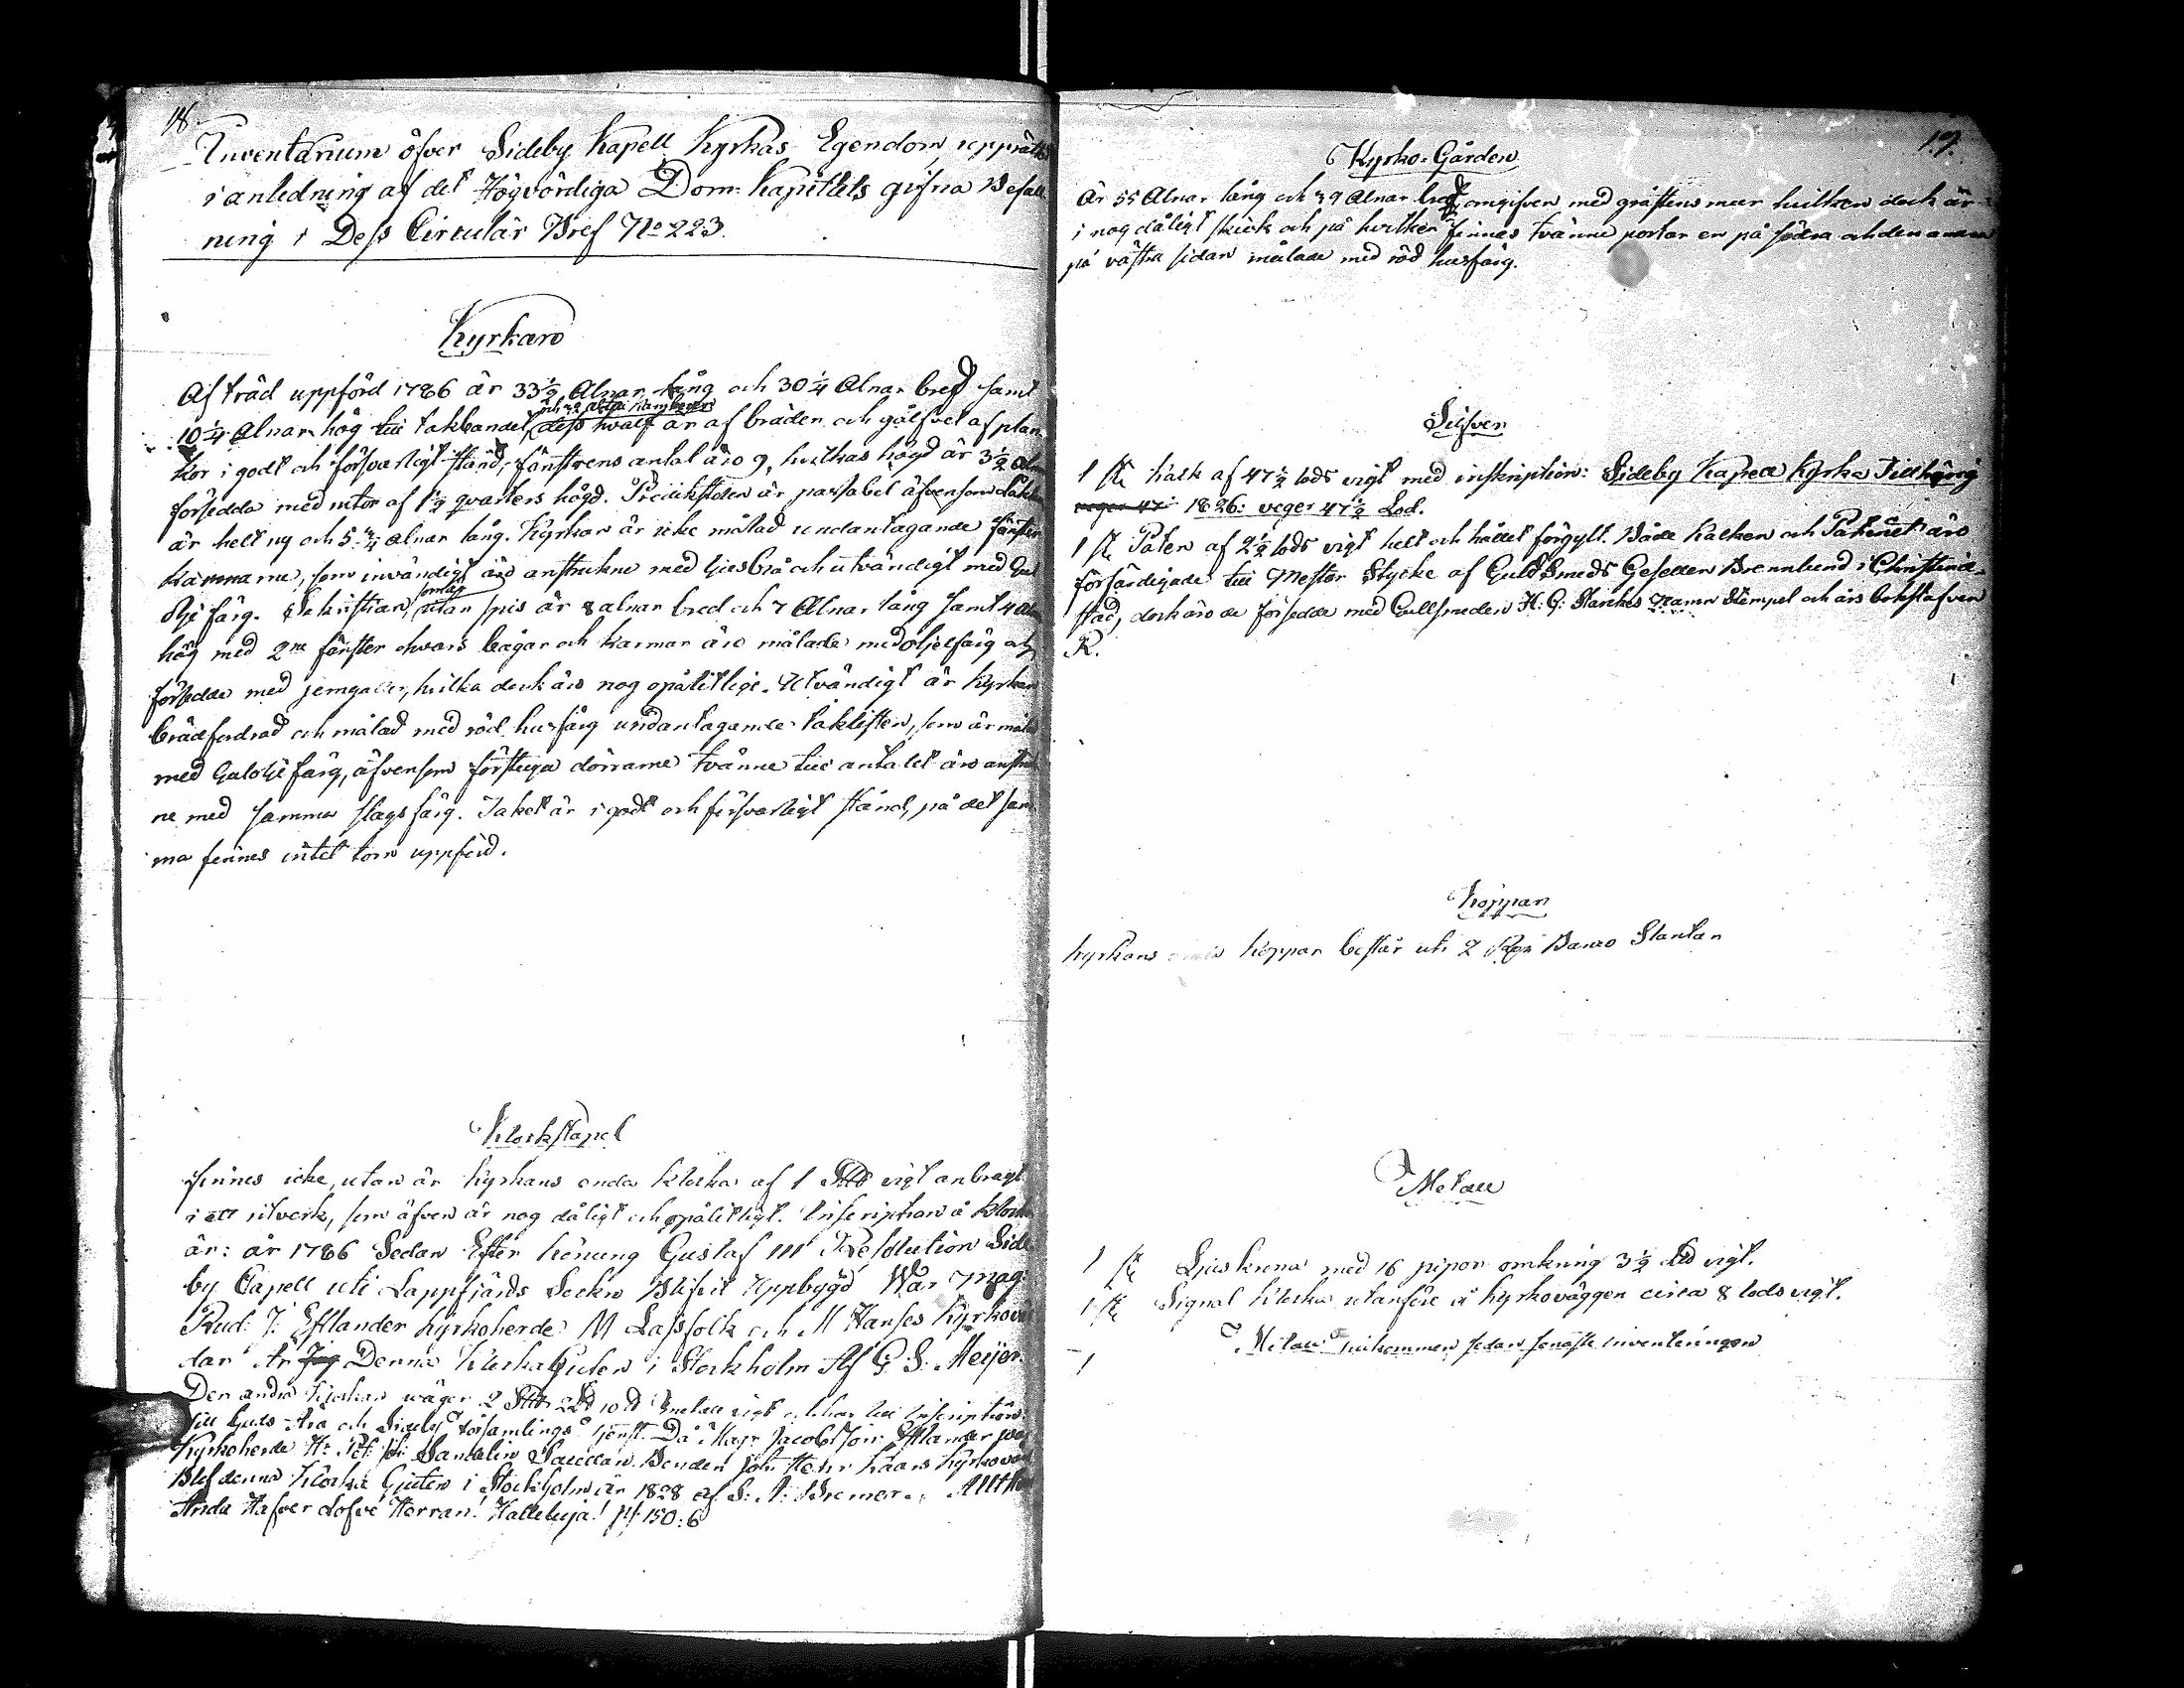 18.
Inventarium öfver Sideby Kapell Kyrkas Egendom, upprätt
i anledning af det Högvördiga Dom-Kapitlets gifna Befall
ning i Dess Circulär Bref No 223.
Kyrkan
Af träd uppförd 1786 är 33 1/2 Alnar lång och 30 1/4 Alnar bred samt
10 1/4 Alnar hög till takbandet, dess hwalf är af bräder och gålfvet af plan
kor i godt och försvarligt stånd, fänstrens antal äro 9, hvilkas högd är 3 1/2 aln
försedda med rutor af 1 1/2 quarters högd. Predikstolen är passabel äfvensom
är helt ny och 5 3/4 alnar lång. Kyrkan är icke målad undantagande fänster
karmarne, som invändigt äro anstrukne med och utvändigt med Gul
olje färg. Sakristian, utan spis är 8 alnar bred och 7 Alnar lång samt 4 aln
hög med 2ne fänster hvars bogar och karmar äro målade med oljefärg och
försedde med jerngaller, hvilka dock äro nog opålitlige. Utvändigt är Kyrkan
brädfodrad och målad med röd husfärg undantagande taklisten, som är måla
med Guloljefärg, äfvensom förstuga dörrarne tvänne till antalet äro anstru
ne med samma slags färg. Taket är i godt och försvarligt stånd, på det sam
ma finnes intet torn uppförd.
Klockstapel
finnes icke, utan är Kyrkans enda klocka af 1 vigt anbragt
i ett ritverk, som äfven är nog dåligt och opålitligt. Inscription å klock
är: år 1786 Sedan Efter Konung Gustaf III Resolution Side
by Capell uti Lappfjärds Sockn Blifvit Uppbygd War Mag:
Rud: J: Estlander Kyrkoherde M Lassfolk och M Hanses Kyrkovär
dar Är Denna Klocka Guten i Stockholm Af G. S. Meijer.
Den andra klockan wäger 2 10 metall vigt och har till Inscription:
Till Guds Ära och Sideby Församlings tjenst. Då Mag: Jacob Estlander war
Kyrkoherde Hr. Pet: Joh: Sandelin Sacellan Kyrkovärd
Blef denna Klocka Gjuten i Stockholm år 1828 af Allt thet
Anda Hafver Lofve Herran! Halleluja! Ps 150:6
19.
Kyrko-Gården
Är 55 Alnar lång och 39 Alnar bred, omgifven med gråstens mur hvilken dock är
i nog dåligt skick och på hvilken finnes tvänne portar en på södra och den andra
på västra sidan målade med röd husfärg.
Silfver
1 st Kalk af 47 1/2 lods vigt med inskription: Sideby Kapell Kyrka Tillhörig
veger 47 1826: veger 47 1/2 Lod.
1 st Paten af 2 1/2 lods vigt helt och hållet förgylt. Både Kalken och Patenet äro
förfärdigade till Mester Stycke af Guld Smeds Gesellen Brennlund i Christine-
stad, dock äro de försedde med Gullsmeden H: G: Namn Stempel och års bokstafven
R.
Koppar
Kyrkans Koppar består uti 2 Banco Slantar
Metall
1 st Ljuskrona med 16 pipor omkring 3 1/2 vigt.
1 st Signal Klocka utanföre å Kyrkoväggen circa 8 lods vigt.
Metall tillkommen sedan senaste inventeringen
1